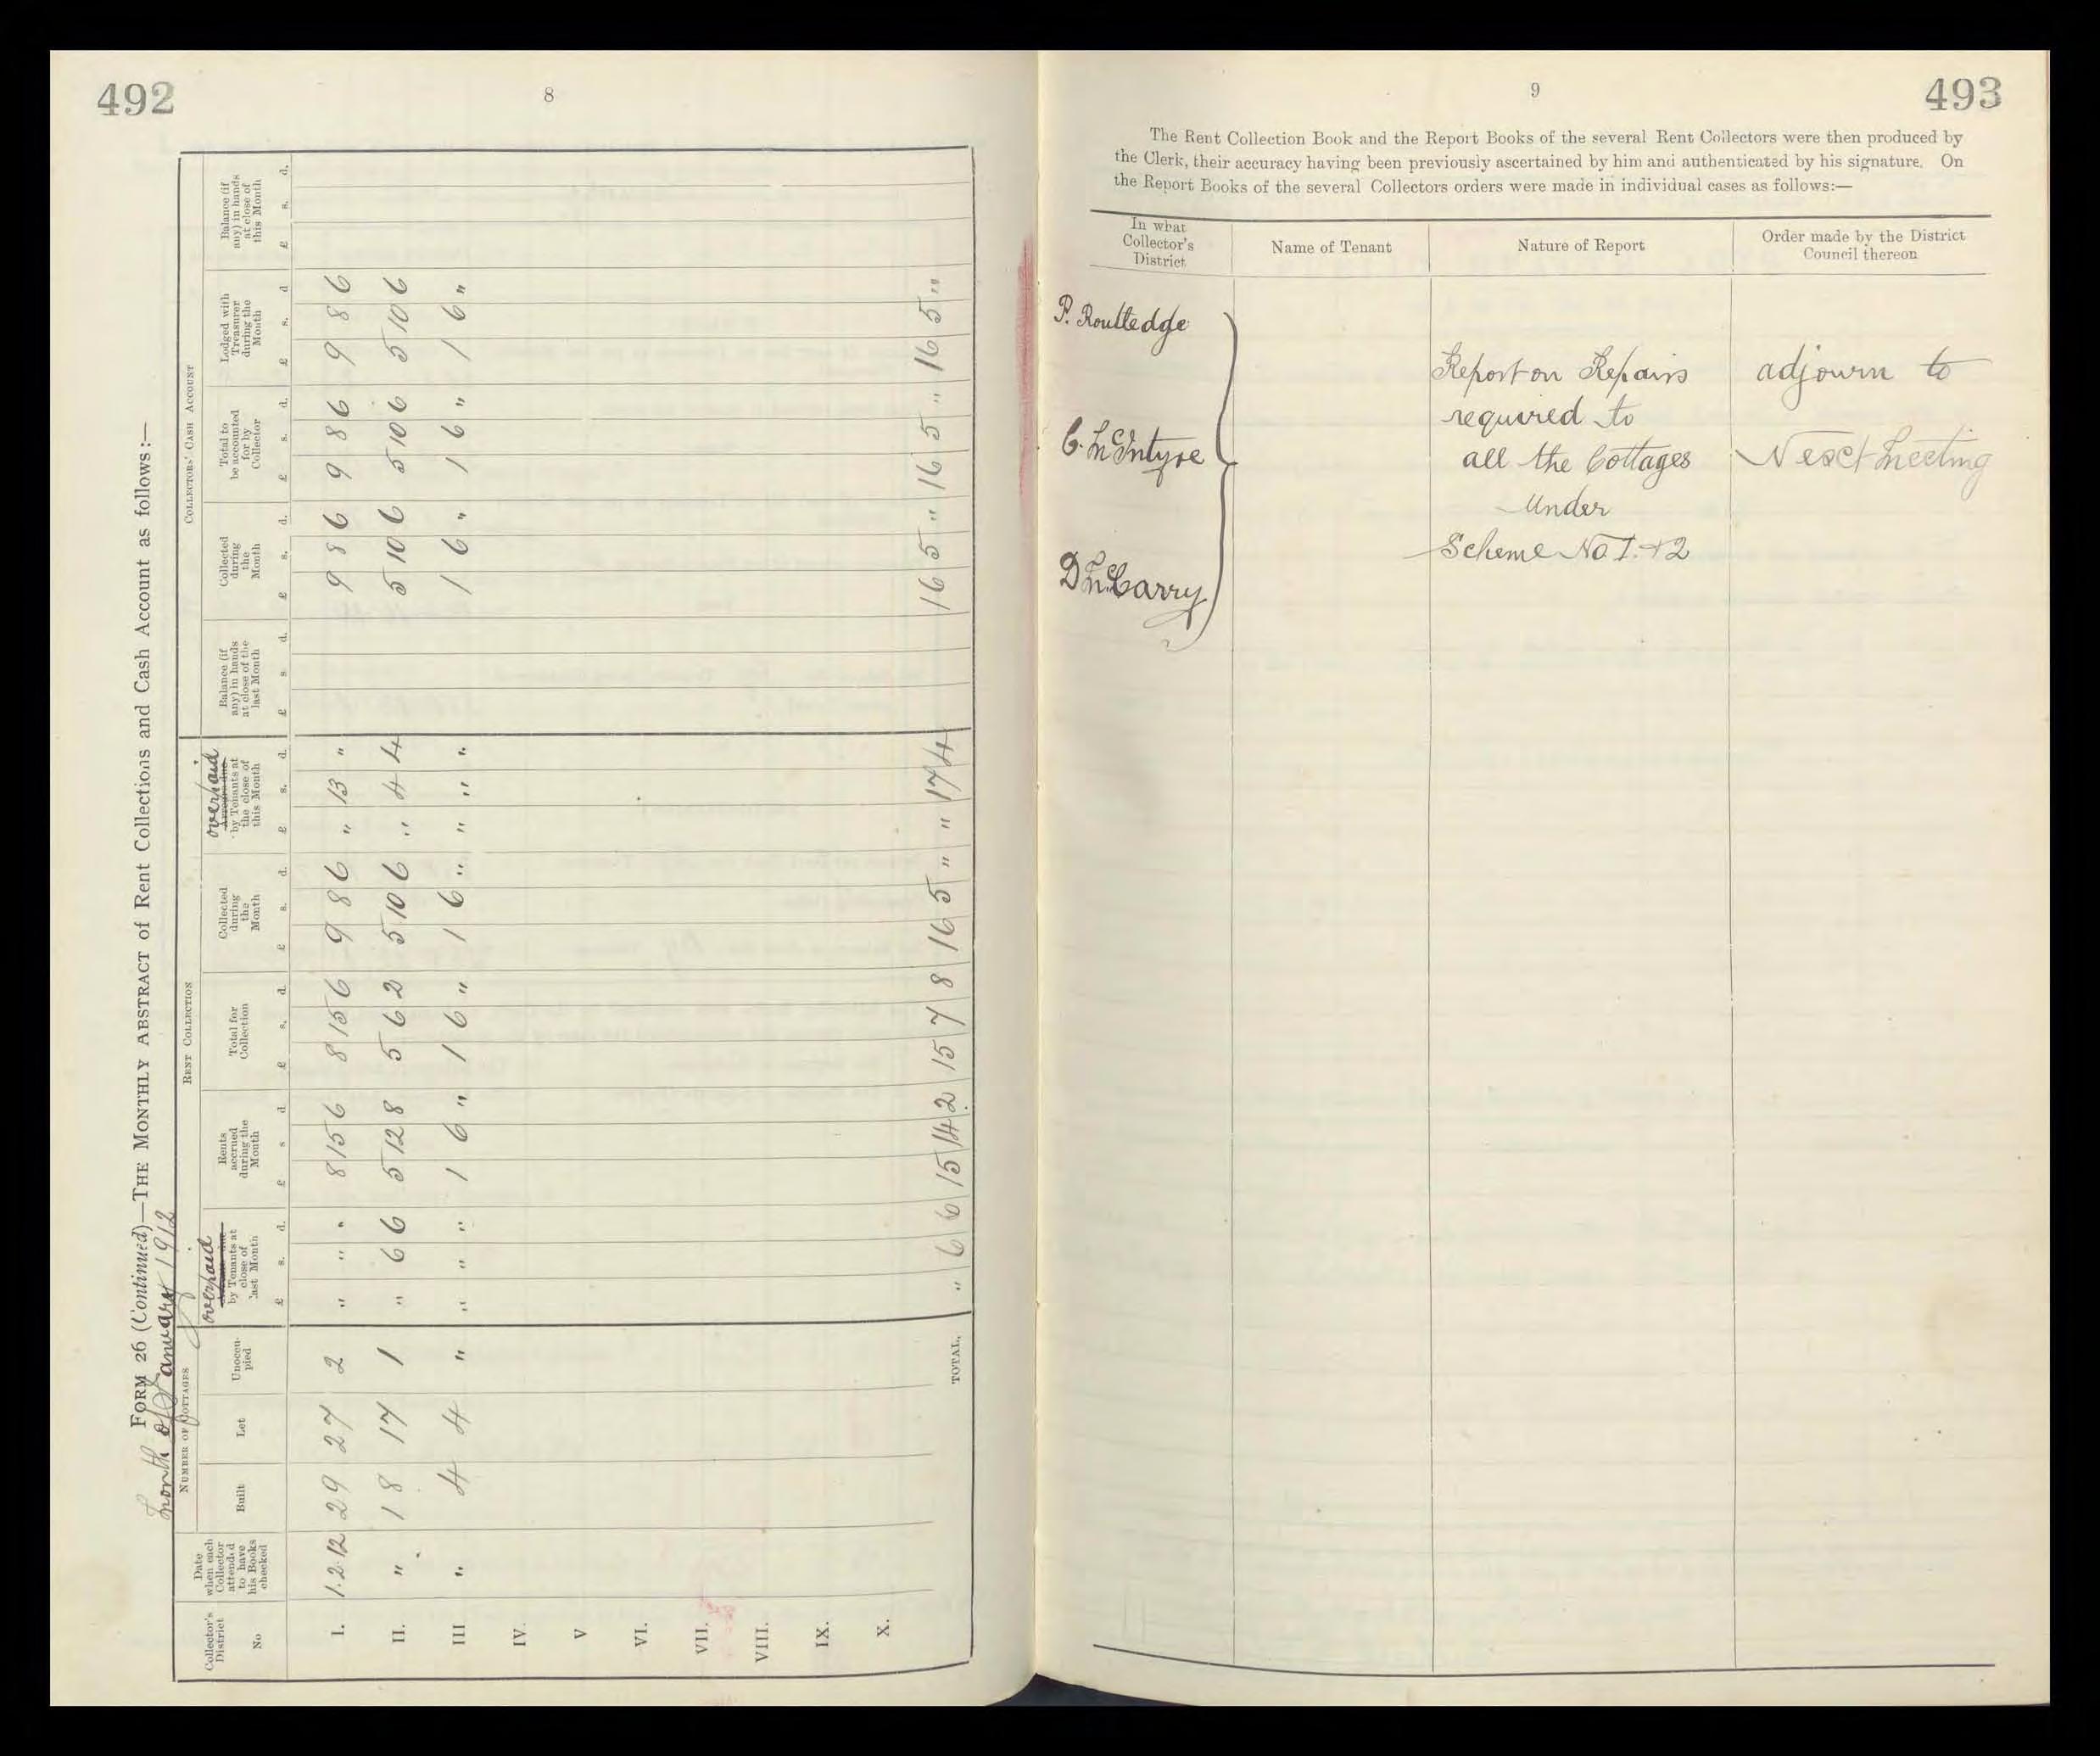 492
8
FORM 26 (Continued)—THE MONTHLY ABSTRACT of Rent Collections and Cash Account as follows:—
Month of January 1912
NUMBER OF COTTAGES RENT COLLECTION COLLECTORS' CASH ACCOUNT
Collector's District No
Date when each Collector attended to have his Books checked
Built
Let
Unoccupied
overpaid by Tenants at close of last Month £ s. d.
Rents accrued during the Month £ s d
Total for Collection £ s. d.
Collected during the Month £ s. d.
overpaid by Tenants at the close of this Month £ s. d.
Balance (if any) in hands at close of the last Month £ s d.
Collected during the Month £ s. d.
Total to be accounted for by Collector £ s. d.
Lodged with Treasurer during the Month £ s. d
Balance (if any) in hands at close of this Month £ s. d.
I. 1.2.12 29 27 2 " " " 8 15 6 8 15 6 9 8 6 " 13 " 9 8 6 9 8 6 9 8 6
II. " 18 17 1 " 6 6 5 12 8 5 6 2 5 10 6 " 4 4 5 10 6 5 10 6 5 10 6
III " 4 4 " " " " 1 6 " 1 6 " 1 6 " " " " 1 6 " 1 6 " 1 6 "
IV.
V
VI.
VII.
VIII.
IX.
X.
TOTAL, " 6 6 15 14 2 15 7 8 16 5 " " 17 4 16 5 " 16 5 " 16 5 "
9
493
The Rent Collection Book and the Report Books of the several Rent Collectors were then produced by
the Clerk, their accuracy having been previously ascertained by him and authenticated by his signature. On
the Report Books of the several Collectors orders were made in individual cases as follows:—
In what Collector's District
Name of Tenant
Nature of Report
Order made by the District Council thereon
P. Routledge
C. McIntyre
D McCarry
Report on Repairs
required to
all the Cottages
under
Scheme No 1. + 2
adjourn to
Next Meeting